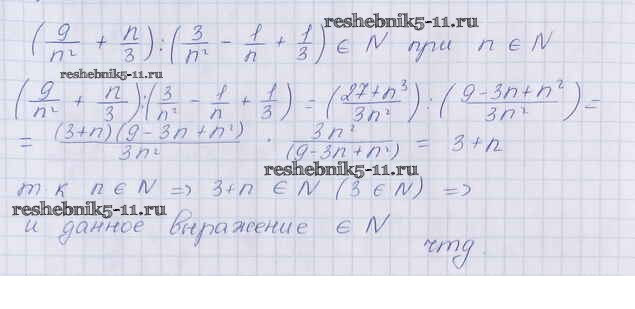 reshebnik5-11.ru
(9/n² + n/3) : (3/n² - 1/n + 1/3) ∈ N при n ∈ N
reshebnik5-11.ru
(9/n² + n/3) : (3/n² - 1/n + 1/3) = ((27+n³)/3n²) : ((9-3n+n²)/3n²) =
= (3+n)(9-3n+n²)/3n² · 3n²/(9-3n+n²) = 3+n
reshebnik5-11.ru
т.к n ∈ N => 3+n ∈ N (3 ∈ N) =>
reshebnik5-11.ru
и данное выражение ∈ N
чтд.